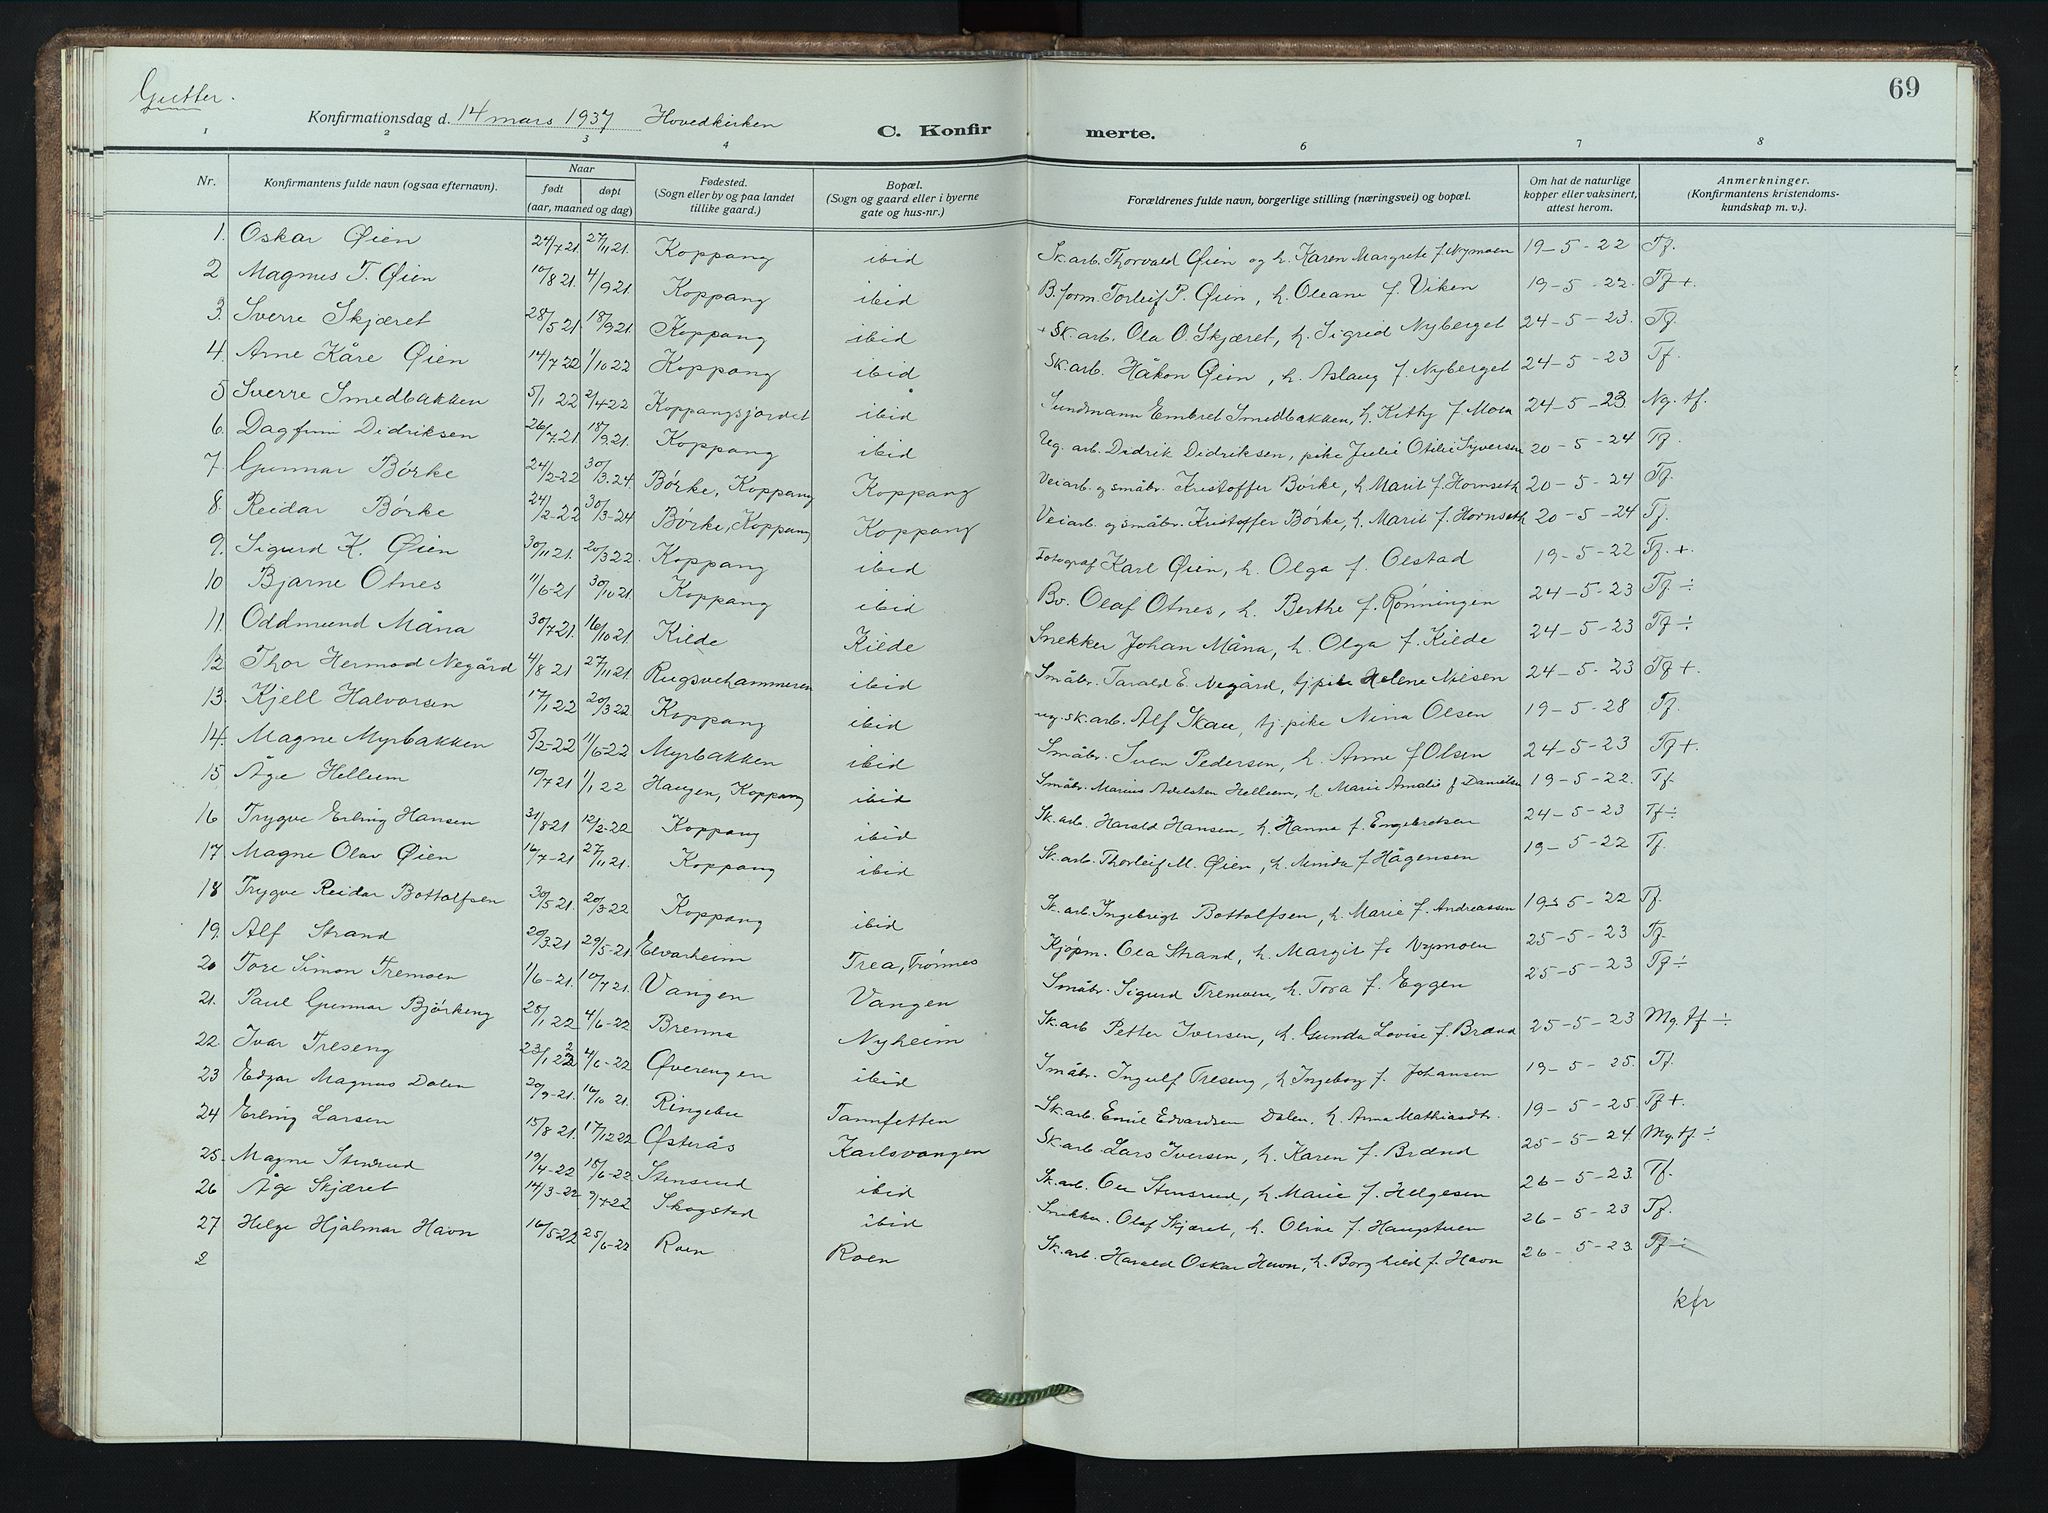 69
Gutter.
Konfirmationsdag d. 14 mars 1937 Hovedkirken
C. Konfirmerte.
1 2 3 4 6 7 8
Nr. Konfirmantens fulde navn (ogsaa efternavn). Naar født døpt (aar, maaned og dag) Fødested. (Sogn eller by og paa landet tillike gaard.) Bopæl. (Sogn og gaard eller i byerne gate og hus-nr.) Forældrenes fulde navn, borgerlige stilling (næringsvei) og bopæl. Om hat de naturlige kopper eller vaksinert, attest herom. Anmerkninger. (Konfirmantens kristendomskundskap m. v.).
1. Oskar Øien 24/7 21. 27/11 21. Koppang ibid Sk.arb. Thorvald Øien og h. Karen Margrete f. Nymoen 19-5-22 Tf.
2 Magnus T. Øien 10/8 21. 4/9 21. Koppang ibid B.form. Torleif P. Øien, h. Oleane f. Viken 19-5-22. Tf +.
3. Sverre Skjæret 28/5 21. 18/9 21. Koppang ibid + Sk. arb. Ola O. Skjæret, h. Sigrid Nyberget 24-5-23. Tf.
4. Arne Kåre Øien 14/7 22 1/10 22 Koppang ibid Sk. arb. Håkon Øien, h. Aslaug f. Nyberget 24-5-23 Tf.
5 Sverre Smedbakken 5/1 22 2/4 22 Koppangsjordet ibid Sundmann Embret Smedbakken, h. Kitty f. Moen 24-5-23. Ng. tf.
6. Dagfinn Didriksen 26/7 21. 18/9 21. Koppang ibid Ug. arb. Didrik Didriksen, pike Julie Otilie Syversen 20-5-24 Tf.
7. Gunnar Börke 24/2-22 30/3-24. Börke, Koppang Koppang Veiarb. og småbr. Kristoffer Börke, h. Marit f. Hornseth 20-5-24 Tf.
8. Reidar Börke 24/2-22 30/3-24 Börke, Koppang Koppang Veiarb. og småbr. Kristoffer Börke, h. Marit f. Hornseth 20-5-24 Tf.
9. Sigurd K. Øien 30/11 21. 20/3 22. Koppang ibid Fotograf Karl Øien, h. Olga f. Olstad 19-5-22 Tf. +
10 Bjarne Otnes 11/6-21 30/10 21. Koppang ibid Bv. Olaf Otnes, h. Berthe f. Rönningen 24-5-23 Tf ÷
11. Oddmund Måna 30/7 21. 16/10 21. Kilde Kilde Snekker Johan Måna, h. Olga f. Kilde 24-5-23 Tf ÷
12 Thor Hermod Negård 4/8 21 27/11 21. Rugsvehammeren ibid Småbr. Tarald E. Negård, tj.pike Helene Nilsen 24-5-23 Tf +.
13. Kjell Halvorsen 17/1 22 20/3 22. Koppang ibid ug. sk. arb. Alf Skau, tj. pike Nina Olsen 19-5-28 Tf.
14. Magne Myrbakken 5/2-22 11/6-22 Myrbakken ibid Småbr. Sven Pedersen, h. Anne f Olsen 24-5-23 Tf +.
15. Åge Helleum 10/7 21 1/1 22 Haugen, Koppang ibid Småbr. Marius Adelsten Helleum, h Marie Amalie f Danielsen 19-5-22. Tf.
16 Trygve Erling Hansen 31/8-21 12/2-22 Koppang ibid Sk. arb. Harald Hansen, h. Hanna f. Engebretsen 24-5-23 Tf ÷
17. Magne Olav Øien 16/7-21 27/11 21. Koppang ibid Sk. arb. Thorleif M. Øien, h. Minda f. Hågensen 19-5-22 Tf.
18 Trygve Reidar Bottolfsen 30/5 21. 20/3 22 Koppang ibid Sk. arb. Ingebrigt Bottolfsen, h. Marie f. Andreassen 19-5-22 Tf.
19. Alf Strand 20/3 21 29/5-21. Elvarheim Trea, Trönnes Kjöpm. Ola Strand, h. Margit f. Nymoen 25-5-23 Tf.
20 Tore Simon Tremoen 1/6-21. 10/7 21. Vangen Vangen Småbr. Sigurd Tremoen, h. Tora f. Eggen 25-5-23 Tf ÷
21. Paul Gunnar Björkeng 28/1 22 4/6-22 Brenna Nyheim Sk. arb Petter Iversen, h. Gunda Lovise f. Brænd 25-5-23 Mg. tf ÷
22. Ivar Treseng 23/1 22 4/6-22 Øverengen ibid Småbr. Ingulf Treseng, h Ingeborg f. Johansen 19-5-25. Tf.
23 Edgar Magnus Dalen 20/9-21. 16/10 21. Ringebu Tannfetten Sk. arb. Emil Edvardsen Dalen, h. Anna Mathiasdtr. 19-5-25 Tf +.
24 Erling Larsen 15/8 21. 17/12 22 Østerås Karlsvangen Sk. arb Lars Iversen, h. Karen f. Brænd 25-5-24. Mg. tf ÷
25. Magne Stensrud 19/4-22 18/6-22 Stensrud ibid Sk. arb. Ole Stensrud, h. Marie f. Helgesen 26-5-23. Tf.
26 Åge Skjæret 14/3-22 Skogstad ibid Snikker Olaf Skjæret, h. Olive f. Haugtuen 26-5-23 Tf.
27 Helge Hjalmar Havn 16/5-22 25/6-22 Roen Roen Sk. arb. Harald Oskar Havn, h. Borghild f. Havn 26-5-23. Tf ÷
2
kfr